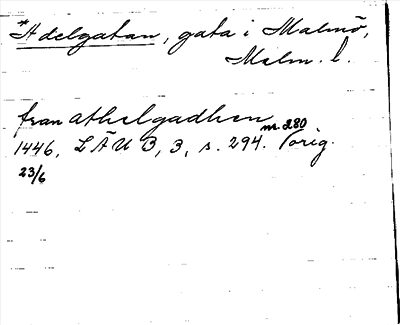 *Adelgatan, gata i Malmö,
Malm. l.
från athelgadhen
nr. 280
1446, LÄU B, 3, s. 294. orig.
23/6